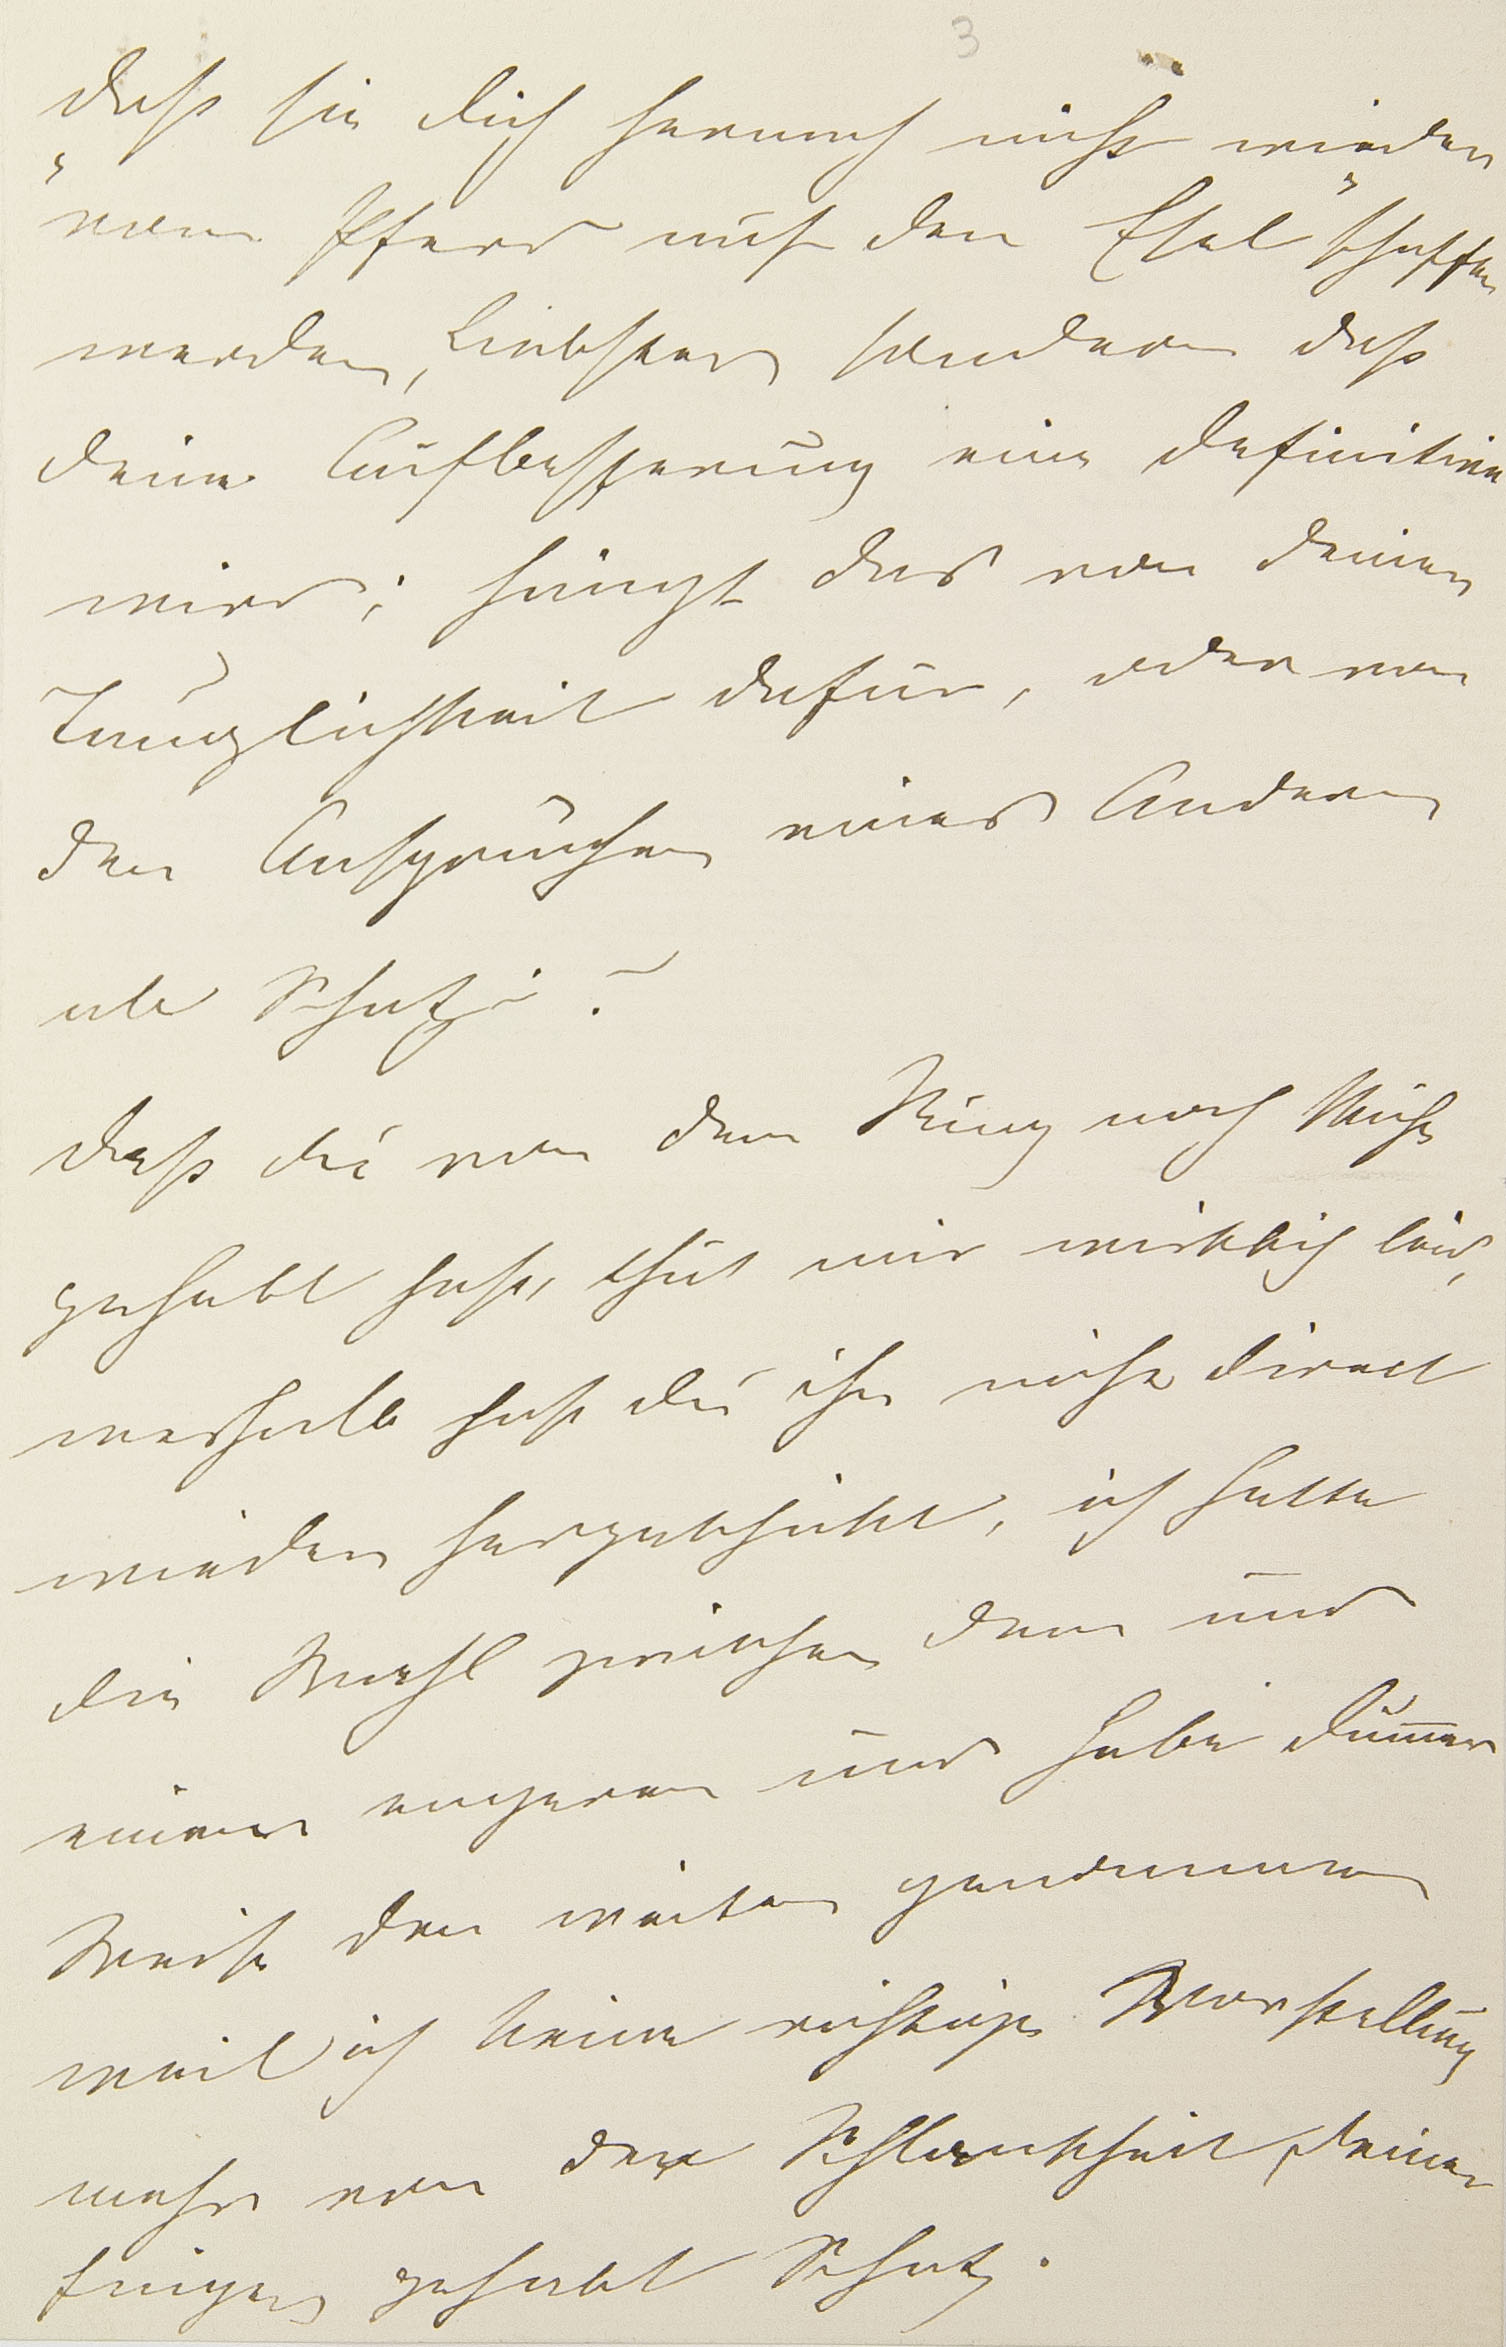 3
daß sie Dich hernach nicht wieder
„vom Pferd auf den Esel" schaffen
werden, Liebster, sondern daß
deine Aufbesserung eine definitive
wird; hängt das von deiner
Tauglichkeit dafür, oder von
den Ansprüchen eines Andern
ab Schatz?
Daß du von dem Ring noch Mühe
gehabt hast, thut mir wirklich leid,
weshalb hast du ihn nicht direct
wieder hergeschickt, ich hatte
die Wahl zwischen dem und
einem engeren und habe dummer
Weise den weiten genommen
weil ich keine richtige Vorstellung
mehr von der Schlankheit deiner
Finger gehabt Schatz.